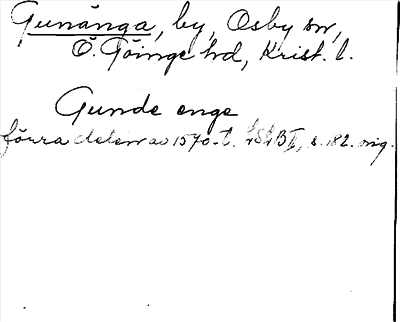 Gunånga, by, Osby sn,
Ö. Göinge hd, Krist. l.
Gunde enge
förra delen av 1570-t. LSkB II, s. 182. orig.